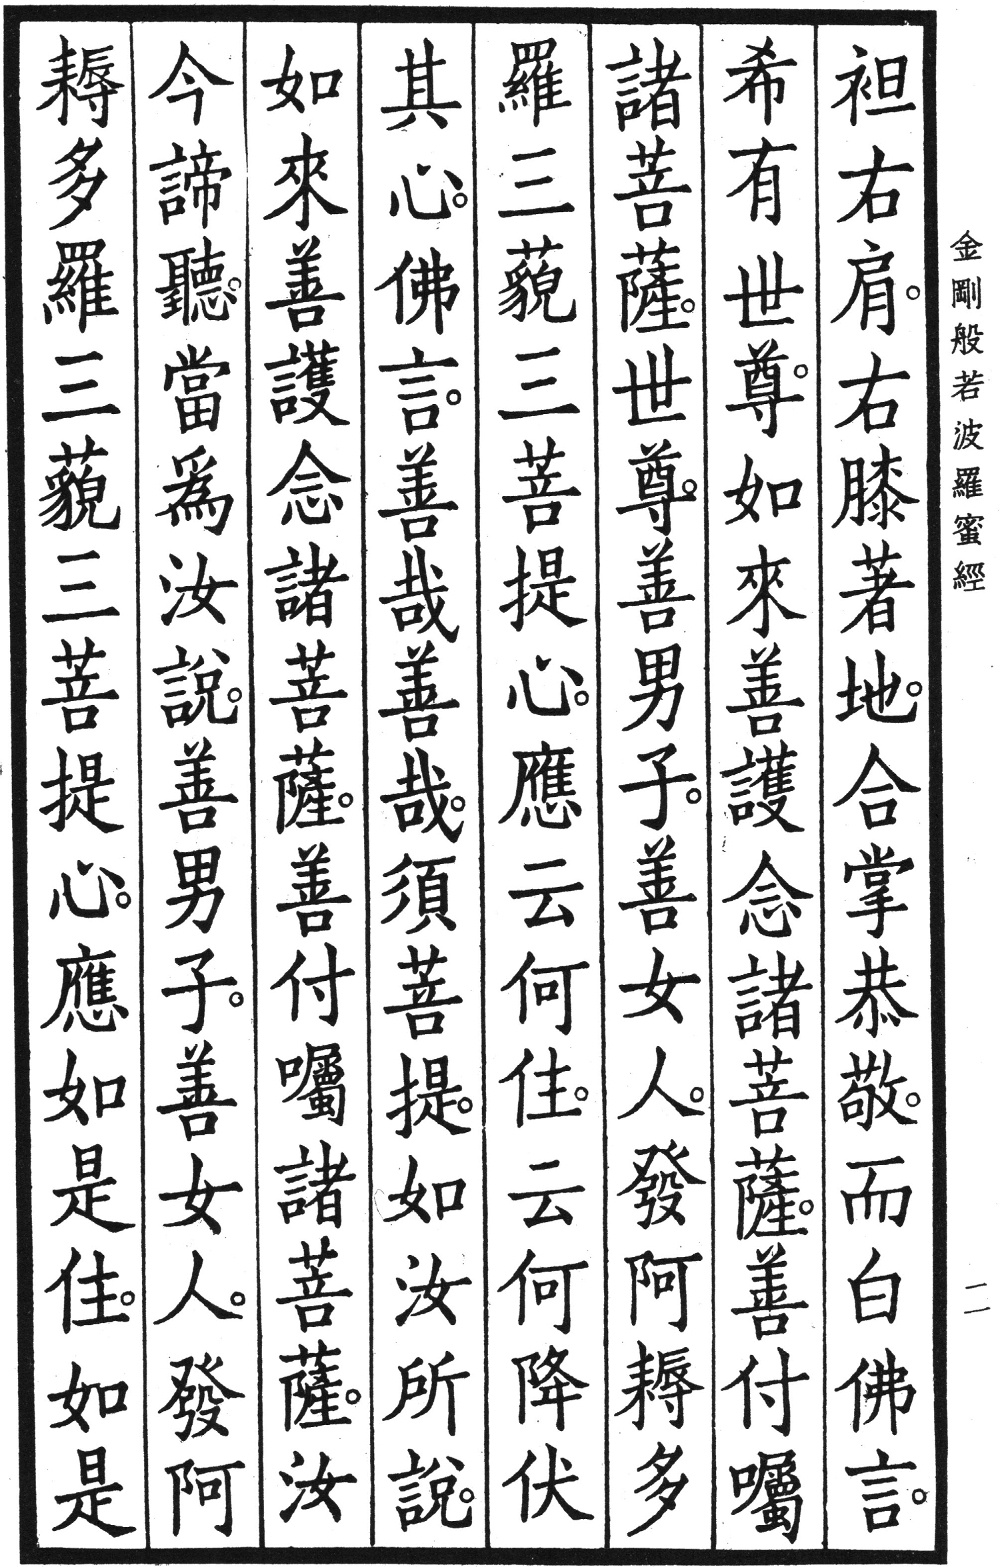 金剛般若波羅蜜經
二
袒右肩。右膝著地。合掌恭敬。而白佛言。
希有世尊。如來善護念諸菩薩。善付囑
諸菩薩。世尊。善男子。善女人。發阿耨多
羅三藐三菩提心。應云何住。云何降伏
其心。佛言。善哉善哉。須菩提。如汝所說。
如來善護念諸菩薩。善付囑諸菩薩。汝
今諦聽。當爲汝說。善男子。善女人。發阿
耨多羅三藐三菩提心。應如是住。如是